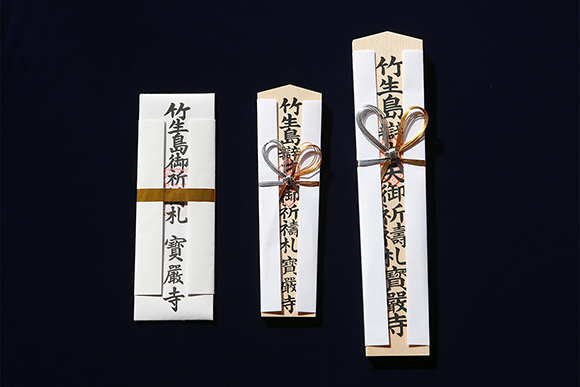 竹生島御祈札 寶嚴寺
竹生島辯御祈禱札寶嚴寺
竹生島辯天御祈禱札寶嚴寺